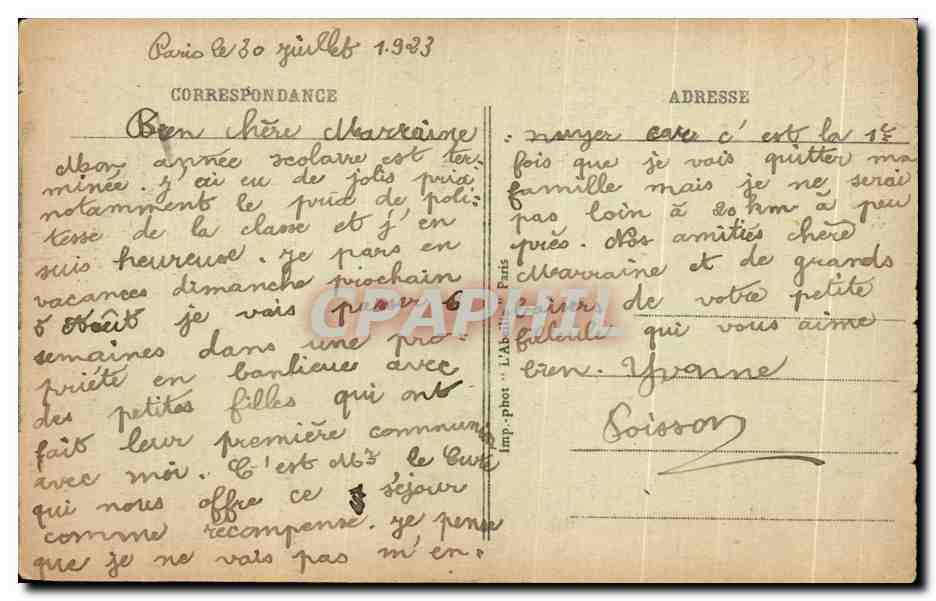 Paris le 30 juillet 1923
CORRESPONDANCE
Bien chère Marraine
Mon année scolaire est ter-
minée. J'ai eu de jolis prix
notamment le prix de poli-
tesse de la classe et j'en
suis heureuse. Je pars en
vacances dimanche prochain
5 Août je vais passer 6
semaines dans une pro-
priété en banlieue avec
des petites filles qui ont
fait leur première communion
avec moi. C'est Mr le Curé
qui nous offre ce séjour
comme récompense. Je pense
que je ne vais pas m'en-
Imp.-phot " L'Abeille " Paris
ADRESSE
nuyer car c'est la 1re
fois que je vais quitter ma
famille mais je ne serai
pas loin à 20 km à peu
près. Nos amitiés chère
Marraine et de grands
baisers de votre petite
filleule qui vous aime
bien. Yvonne
Poisson
CPAPHIL